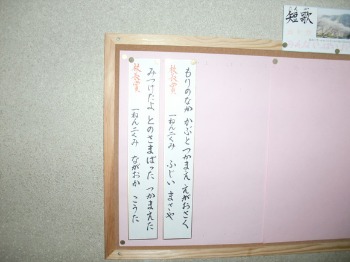 短歌
もりのなか かぶとつかまえ えがおさく
校長賞 一ねん二くみ ふじい まさや
みつけたよ とのさまばった つかまえた
校長賞 一ねん二くみ ながおか こうた